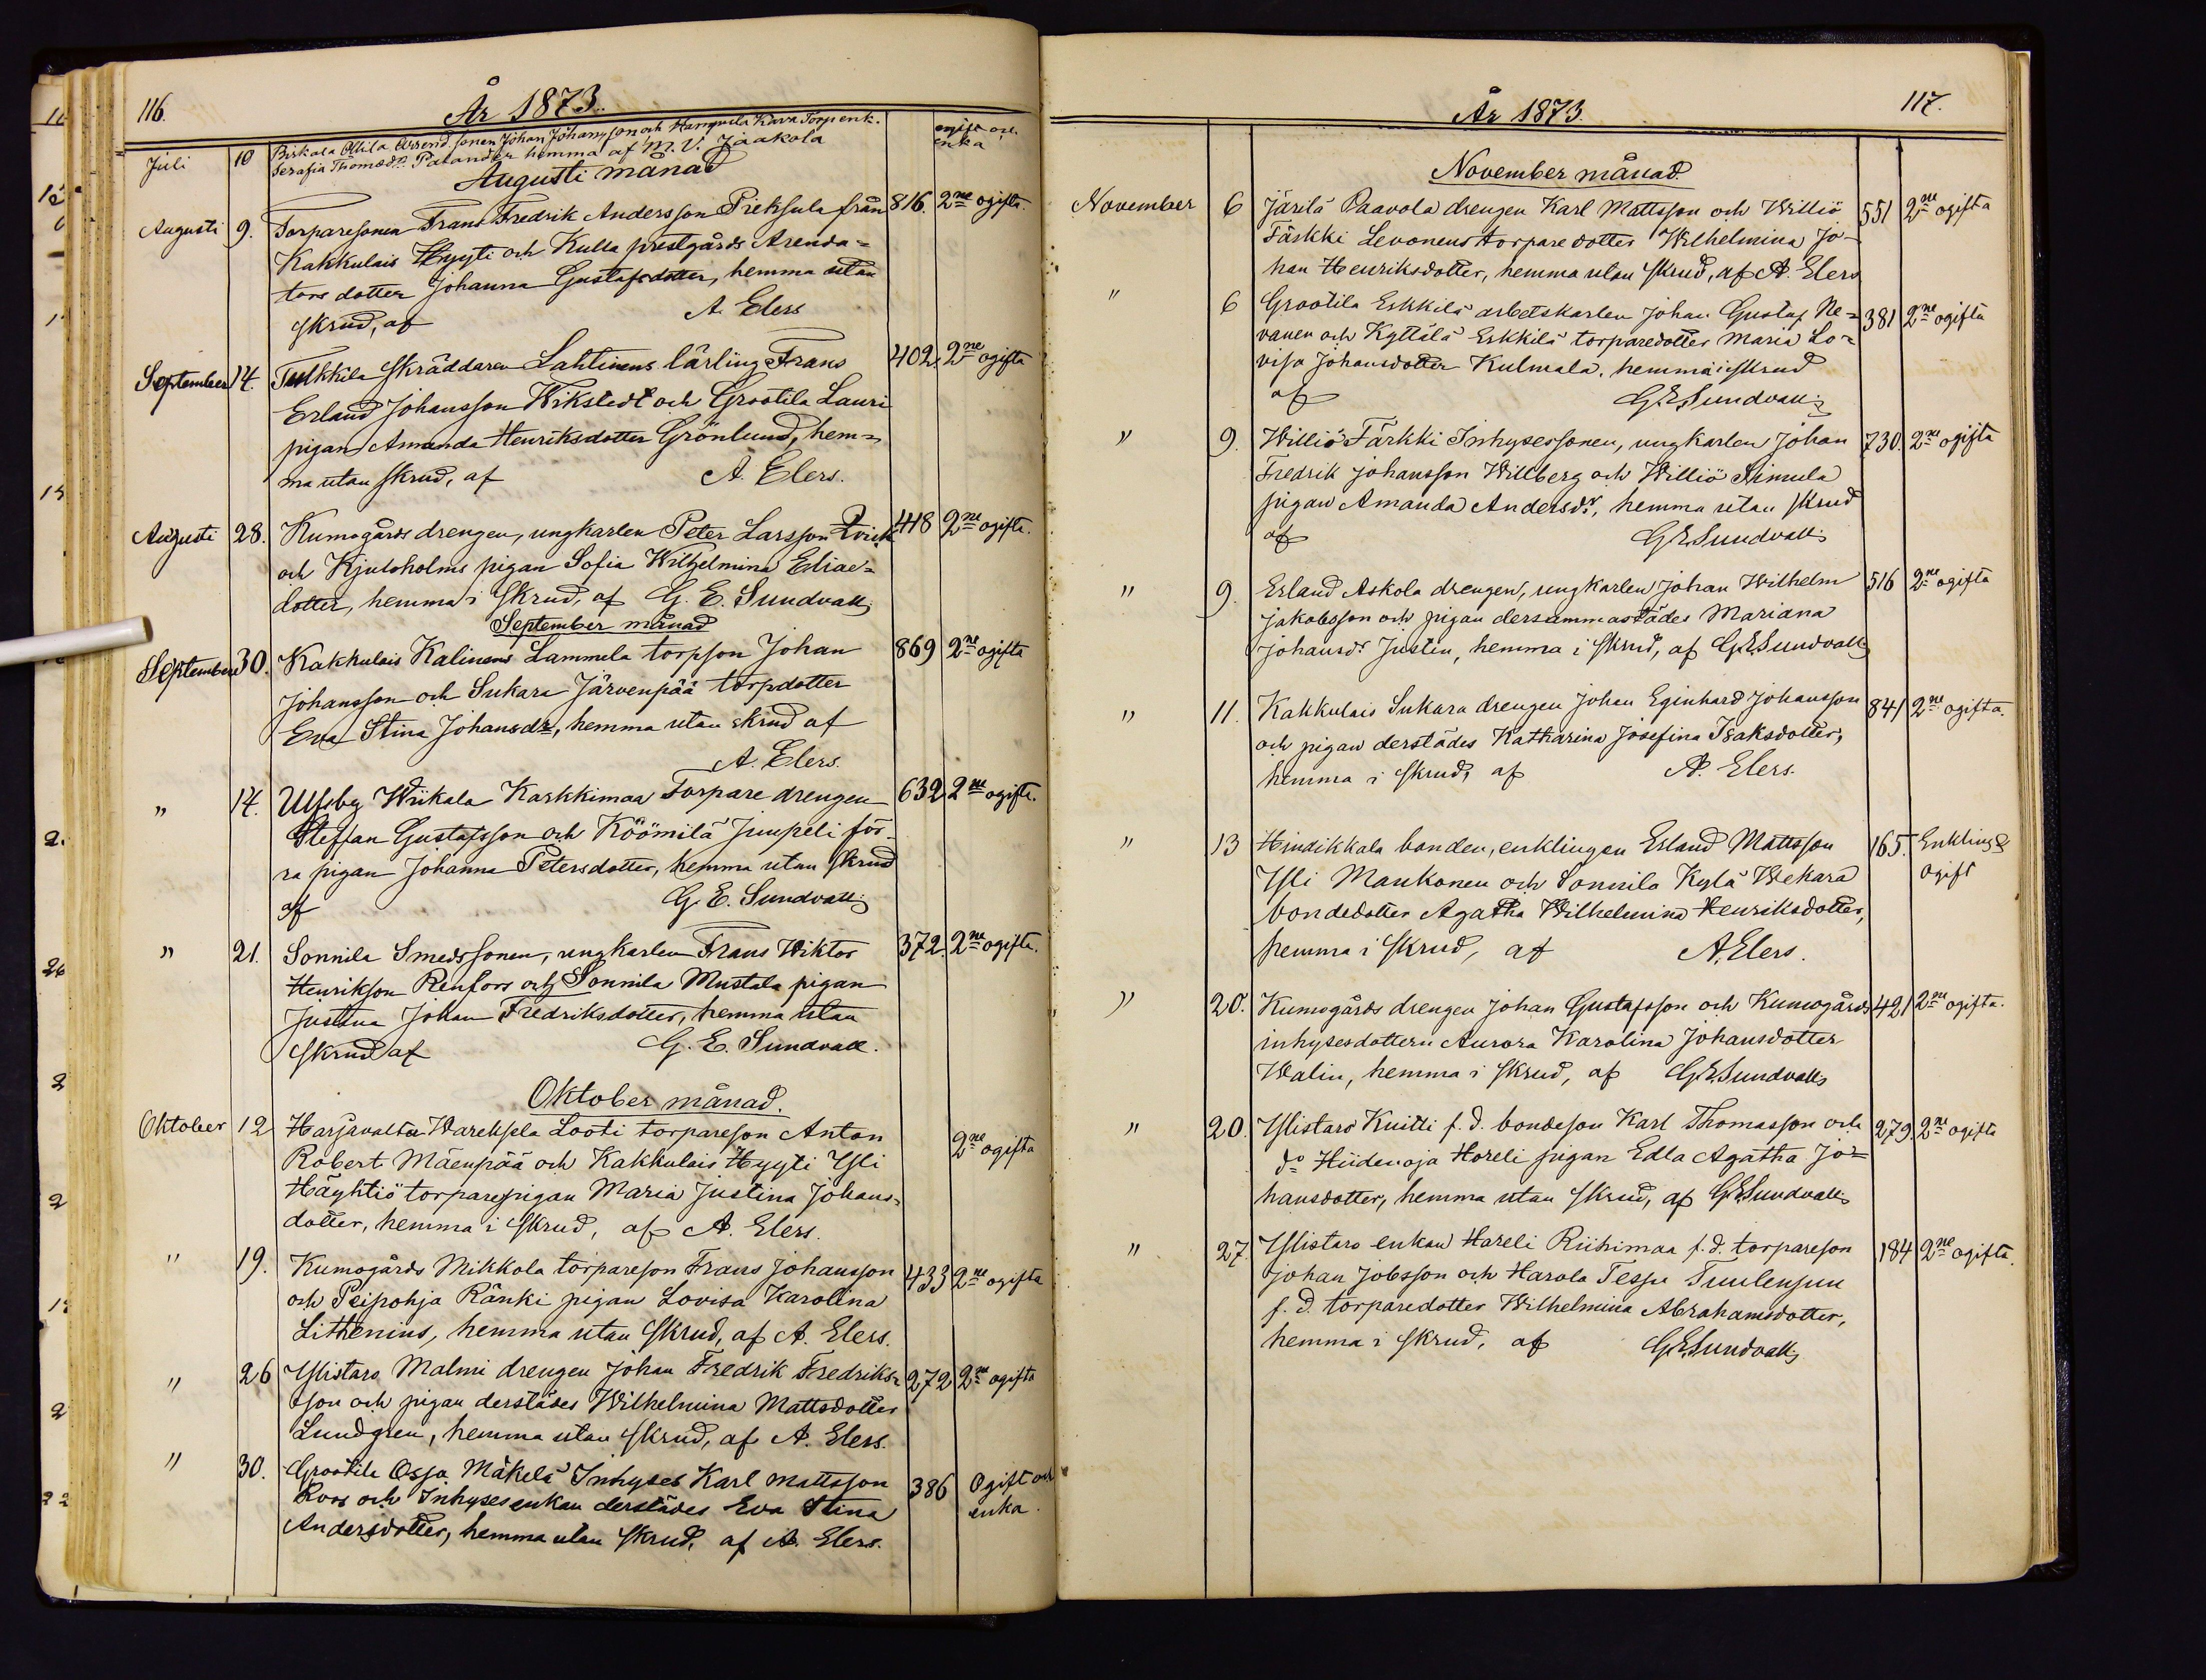 116.
År 1873.
Juli 10 Birkala Ollila Arrend. sonen Johan Johansson och Hanquela Kara Torp enk. ogift och
Serafia Thomasdr Palander hemma af M. V. Jaakola enka
Augusti månad
Augusti 9. Torparesonen Frans Fredrik Andersson Pieksula från 816. 2ne ogifta.
Kakkulais Hyyti och Kulla prestgårds Arenda=
tors dotter Johanna Gustafsdotter, hemma utan
skrud, af A. Elers
September 14. Tulkkila Skräddaren Lahtinens lärling Frans 402. 2ne ogifta
Erland Johansson Wikstedt och Grootila Lauri
pigan Amanda Henriksdotter Grönlund, hem=
ma utan skrud, af A. Elers.
Augusti 28. Kumogårds drengen, ungkarlen Peter Larsson Qvick 418 2ne ogifta.
och Kjuloholms pigan Sofia Wilhelmina Elias=
dotter, hemma i skrud, af G. E. Sundvall
September månad
September 30. Kakkulais Kalinens Lammela torpson Johan 869 2ne ogifta
Johansson och Sukara Järvenpää torpdotter
Eva Stina Johansdr, hemma utan skrud af
A. Elers.
" 14. Ulfsby Wiikala Karkkimaa Torpare drengen 632 2ne ogifta.
Steffan Gustafsson och Köömilä Juupeli för
ra pigan Johanna Petersdotter, hemma utan skrud
af G. E. Sundvall
" 21. Sonnila Smedssonen, ungkarlen Frans Wiktor 372. 2ne ogifta.
Henrikson Renfors och Sonnila Mustala pigan
Justina Johan Fredriksdotter, hemma utan
skrud af G. E. Sundvall.
Oktober månad.
Oktober 12 Harjavalta Wareksela Looti torpareson Anton 2ne ogifta
Robert Mäenpää och Kakkulais Hyyti Yli
Häyhtiö torparepigan Maria Justina Johans=
dotter, hemma i skrud, af A. Elers.
" 19. Kumogårds Mikkola torpareson Frans Johansson 433 2ne ogifta
och Peipohja Ränki pigan Lovisa Karolina
Lithenius, hemma utan skrud, af A. Elers.
" 26 Ylistaro Malmi drengen Johan Fredrik Fredriks= 272 2ne ogifta
son och pigan derstädes Wilhelmina Mattsdotter
Lundgren, hemma utan skrud, af A. Elers.
" 30. Grootila Ossa Mäkelä Inhyses Karl Mattsson 386 Ogift och
Roos och Inhysesenkan derstädes Eva Stina enka.
Andersdotter, hemma utan skrud, af A. Elers.
117.
År 1873.
November månad.
November 6 Järilä Paavola drengen Karl Mattsson och Williö 551 2ne ogifta
Tärkki Levonens torpare dotter Wilhelmina Jo-
han Henriksdotter, hemma utan skrud, af A. Elers
" 6 Grootila Eskkilä arbetskarlen Johan Gustaf Ne= 381 2ne ogifta
vanen och Kyttälä Eskkilä torparedotter Maria Lo=
visa Johansdotter Kulmala, hemma i skrud
af G. E. Sundvall
" 9. Williö Tärkki Inhysessonen, ungkarlen Johan 730. 2ne ogifta
Fredrik Johansson Willberg och Williö Simula
pigan Amanda Andersdr, hemma utan skrud
af G. E. Sundvall
" 9. Erland Askola drengen, ungkarlen Johan Wilhelm 516 2ne ogifta
Jakobsson och pigan dersammastädes Mariana
Johansdr Justin, hemma i skrud, af G. E. Sundvall
" 11. Kakkulais Sukara drengen Johan Eginhard Johansson 841 2ne ogifta.
och pigan derstädes Katharina Josefina Isaksdotter,
hemma i skrud, af A. Elers.
" 13 Hindikkala bonden, enklingen Erland Mattsson 165. Enkling &
Yli Maukonen och Sonnila Kylä Wekara ogift
bondedotter Agatha Wilhelmina Henriksdotter,
hemma i skrud, af A. Elers.
" 20. Kumogårds drengen Johan Gustafsson och Kumogårds 421 2ne ogifta.
inhysesdottern Aurora Karolina Johansdotter
Walin, hemma i skrud, af G. E. Sundvall
" 20. Ylistaro Knitti f. d. bondeson Karl Thomasson och 279. 2ne ogifta
do Hiidenoja Horeli pigan Edla Agatha Jo=
hansdotter, hemma utan skrud, af G. E. Sundvall
" 27. Ylistaro enkan Hareli Riihimaa f. d. torpareson 184 2ne ogifta.
Johan Jobsson och Harola Tessu Tuulensuu
f. d. torparedotter Wilhelmina Abrahamsdotter,
hemma i skrud, af G. E. Sundvall